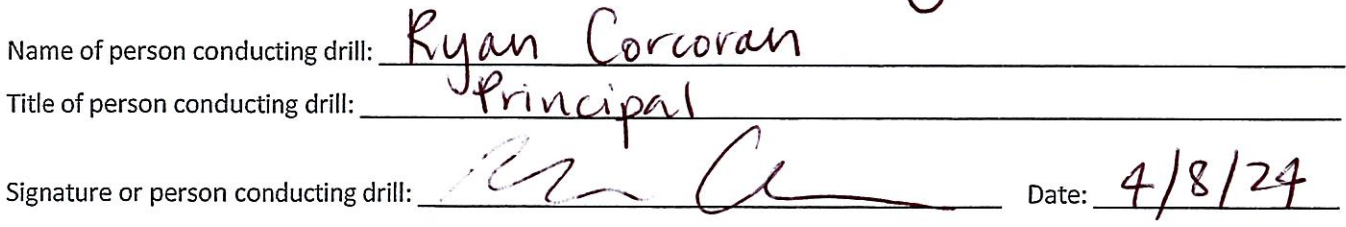 Name of person conducting drill: Ryan Corcoran
Title of person conducting drill: Principal
Signature or person conducting drill: Date: 4/8/24